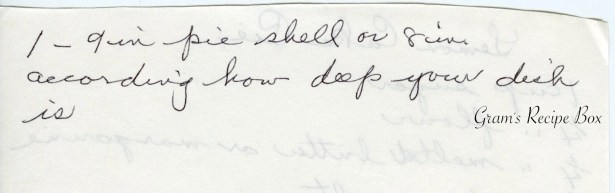 1 - 9 in pie shell or 8 in.
according how deep your dish
is
Gram's Recipe Box